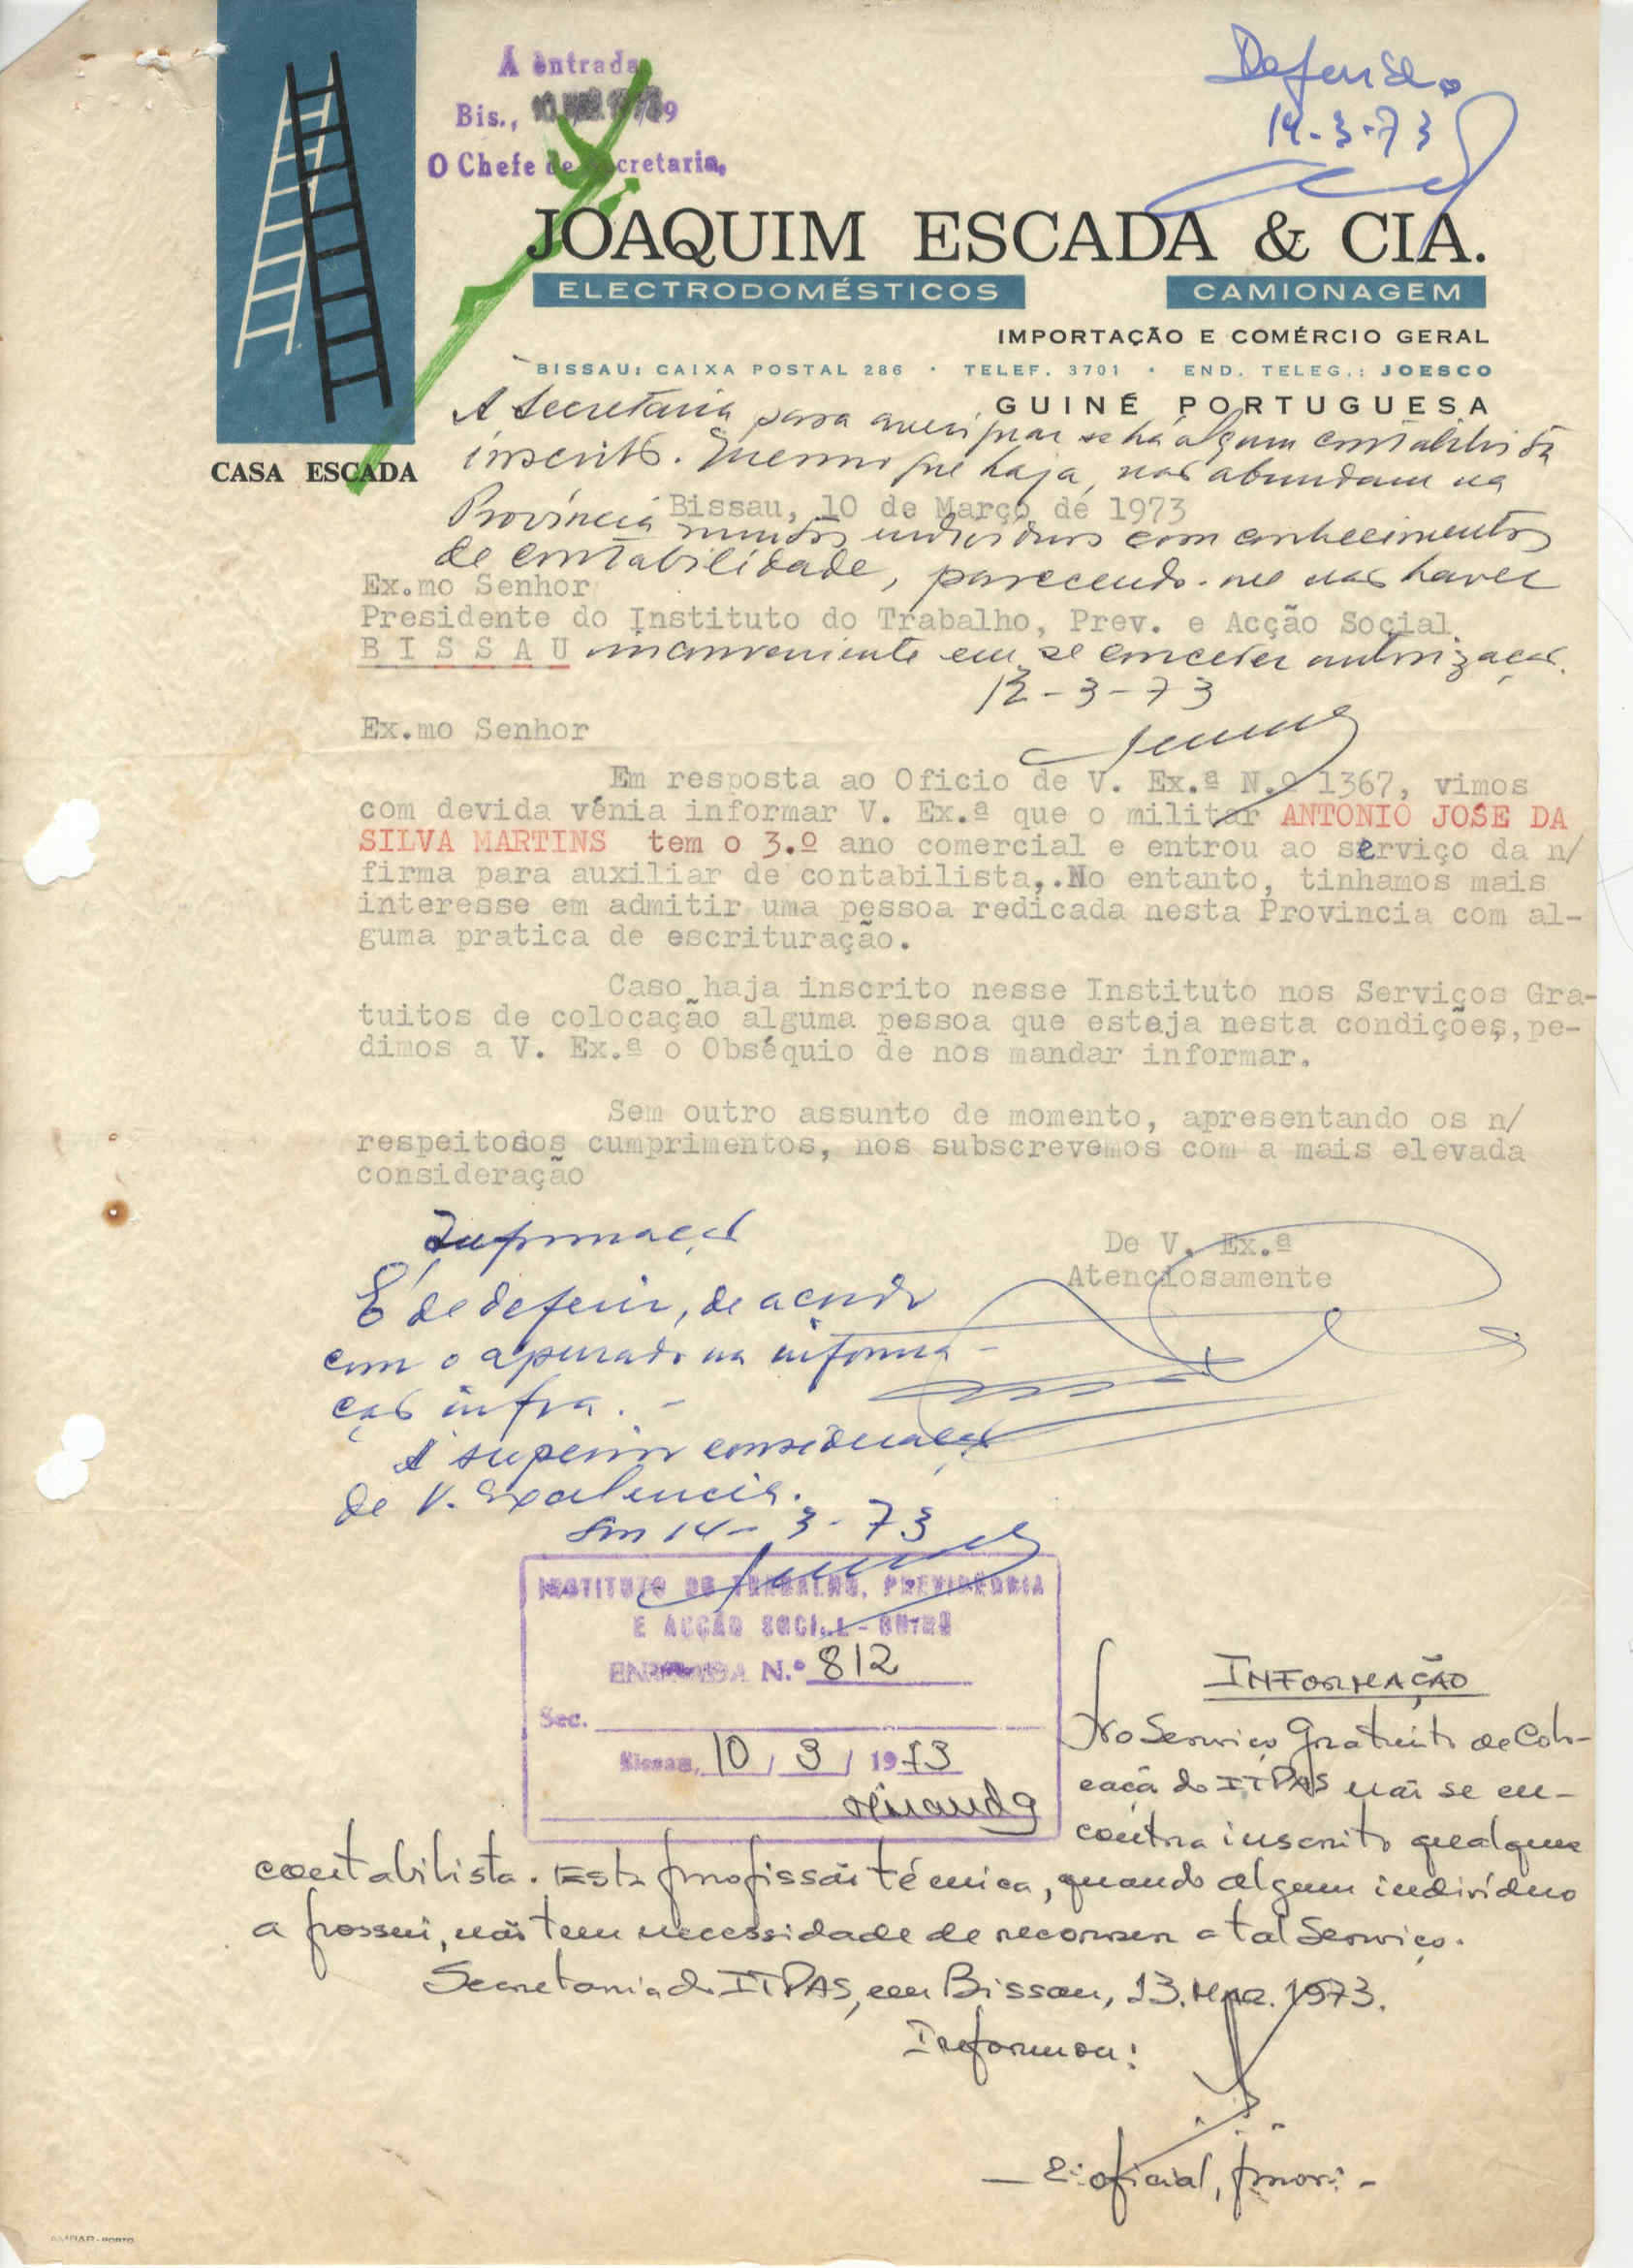 Á entrada
Bis.,
O Chefe de Secretaria,
Deferido
14-3-73
JOAQUIM ESCADA & CIA.
ELECTRODOMÉSTICOS CAMIONAGEM
IMPORTAÇÃO E COMÉRCIO GERAL
BISSAU: CAIXA POSTAL 286 • TELEF. 3701 • END. TELEG.: JOESCO
GUINÉ PORTUGUESA
CASA ESCADA
A Secretaria para averiguar se há algum contabilista
inscrito. Mesmo que haja, não abundam na
Bissau, 10 de Março de 1973
Província muitos indivíduos com conhecimentos
de contabilidade, parecendo-me não haver
Ex.mo Senhor
Presidente do Instituto do Trabalho, Prev. e Acção Social
B I S S A U
inconveniente em se conceder autorização.
12-3-73
Ex.mo Senhor
Em resposta ao Oficio de V. Ex.ª N.º 1367, vimos
com devida vénia informar V. Ex.ª que o militar ANTONIO JOSE DA
SILVA MARTINS tem o 3.º ano comercial e entrou ao serviço da n/
firma para auxiliar de contabilista,.No entanto, tinhamos mais
interesse em admitir uma pessoa redicada nesta Provincia com al-
guma pratica de escrituração.
Caso haja inscrito nesse Instituto nos Serviços Gra-
tuitos de colocação alguma pessoa que esteja nesta condições,pe-
dimos a V. Ex.ª o Obséquio de nos mandar informar.
Sem outro assunto de momento, apresentando os n/
respeitosos cumprimentos, nos subscrevemos com a mais elevada
consideração
De V. Ex.ª
Atenciosamente
Informação
É de deferir, de acordo
com o apurado na informa-
ção infra.-
À superior consideração
de V. Excelencia.
Em 14-3-73
INSTITUTO DO TRABALHO, PREVIDÊNCIA
E ACÇÃO SOCIAL - GUINÉ
ENTRADA N.º 812
Sec.
Bissau, 10 / 3 / 1973
Miranda
INFORMAÇÃO
No Serviço Gratuito de Colo-
cação do ITPAS não se en-
contra inscrito qualquer
contabilista. Esta profissão técnica, quando algum indivíduo
a possui, não tem necessidade de recorrer a tal Serviço.
Secretaria do ITPAS, em Bissau, 13.Mar.1973.
Informou:
- 2º oficial, provº -
AMBAR-PORTO